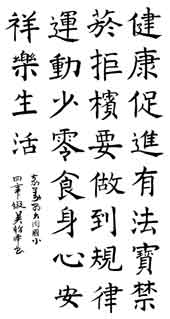 健康促進有法寶禁
菸拒檳要做到規律
運動少零食身心安
祥樂生活
國小
四年